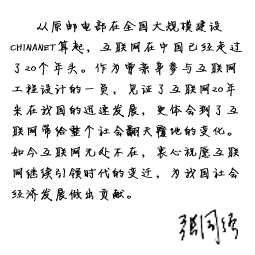 从原邮电部在全国大规模建设
CHINANET算起，互联网在中国已经走过
了20个年头。作为曾亲身参与互联网
工程设计的一员，见证了互联网20年
来在我国的迅速发展，更体会到了互
联网带给整个社会翻天覆地的变化。
如今互联网无处不在，衷心祝愿互联
网继续引领时代的变迁，为我国社会
经济发展做出贡献。